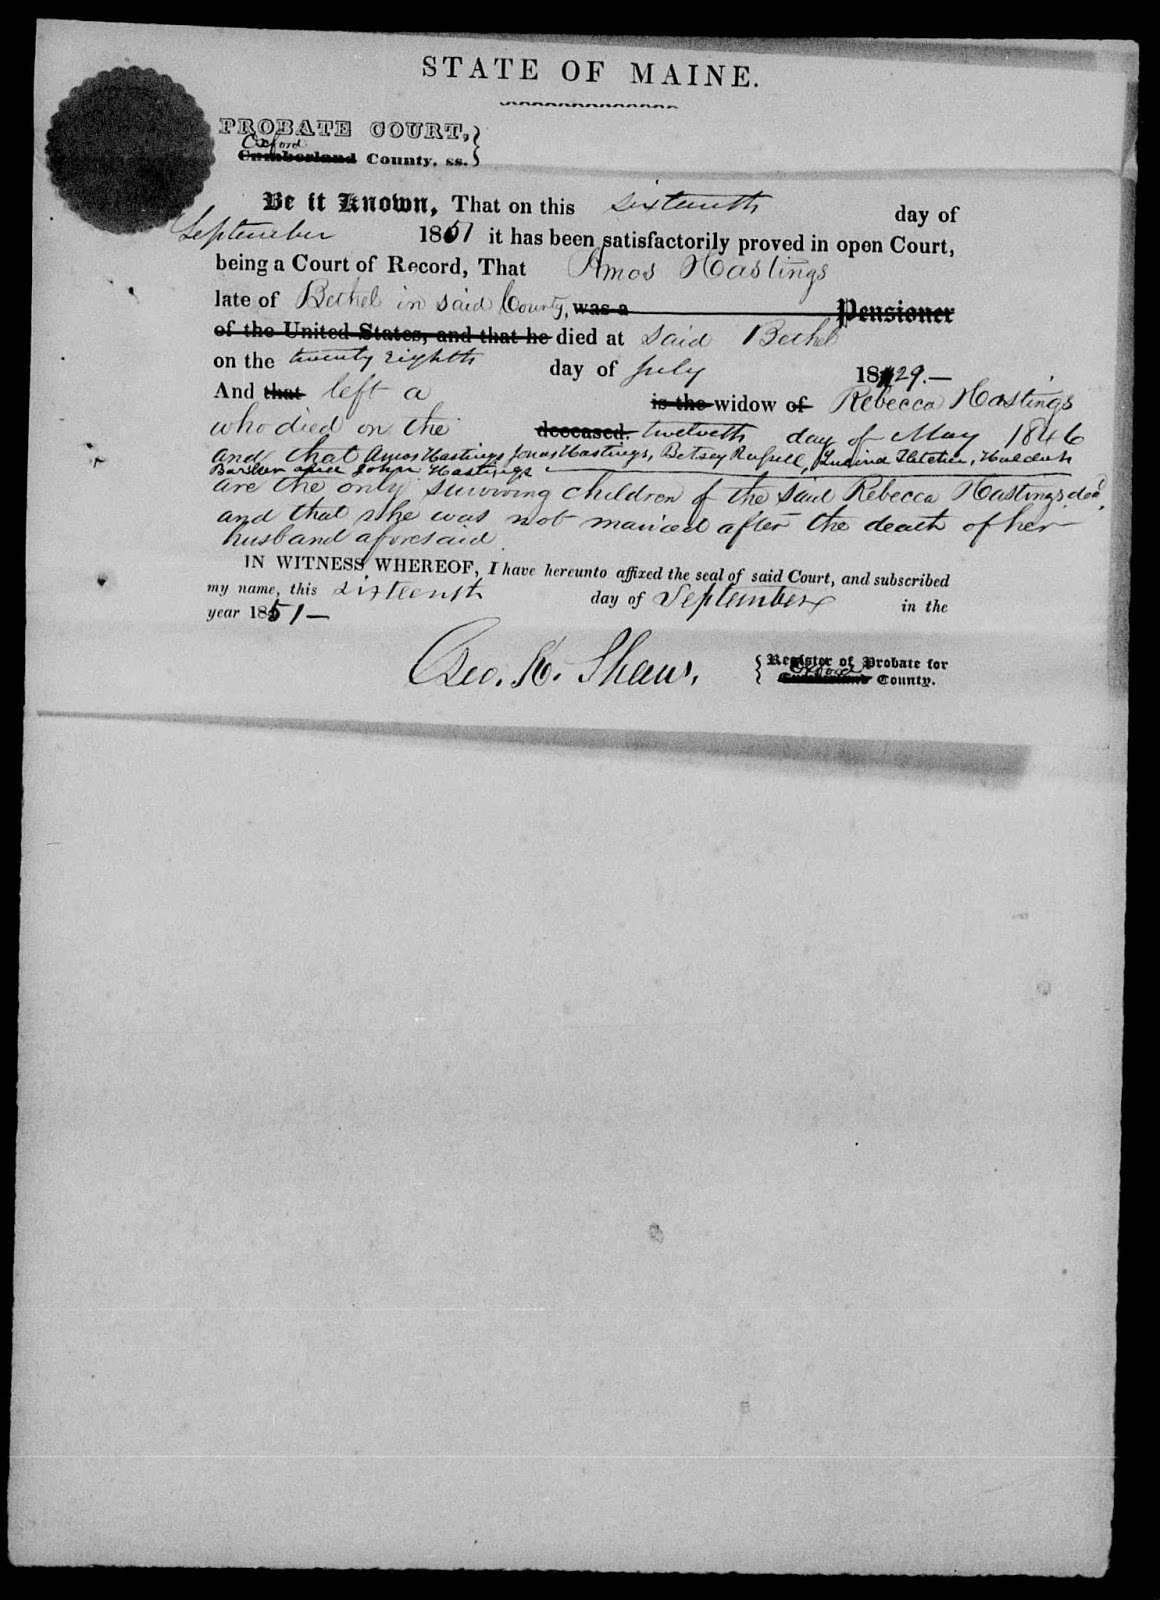 STATE OF MAINE.
PROBATE COURT,
Oxford
Cumberland County, ss.
Be it Known, That on this sixteenth day of
September 1851 it has been satisfactorily proved in open Court,
being a Court of Record, That Amos Hastings
late of Bethel in said County, was a Pensioner
of the United States, and that he died at said Bethel
on the twenty eighth day of July 1829.—
And that left a is the widow of Rebecca Hastings
who died on the deceased. twelveth day of May 1846
and that Amos Hastings Jonas Hastings, Betsey Russell, Lucind Fletcher, Huldah
Barker and John Hastings
are the only surviving children of the said Rebecca Hastings decd.
and that she was not married after the death of her
husband aforesaid
IN WITNESS WHEREOF, I have hereunto affixed the seal of said Court, and subscribed
my name, this sixteenth day of September in the
year 1851—
Geo. K. Shaw, Register of Probate for
Oxford
Cumberland County.